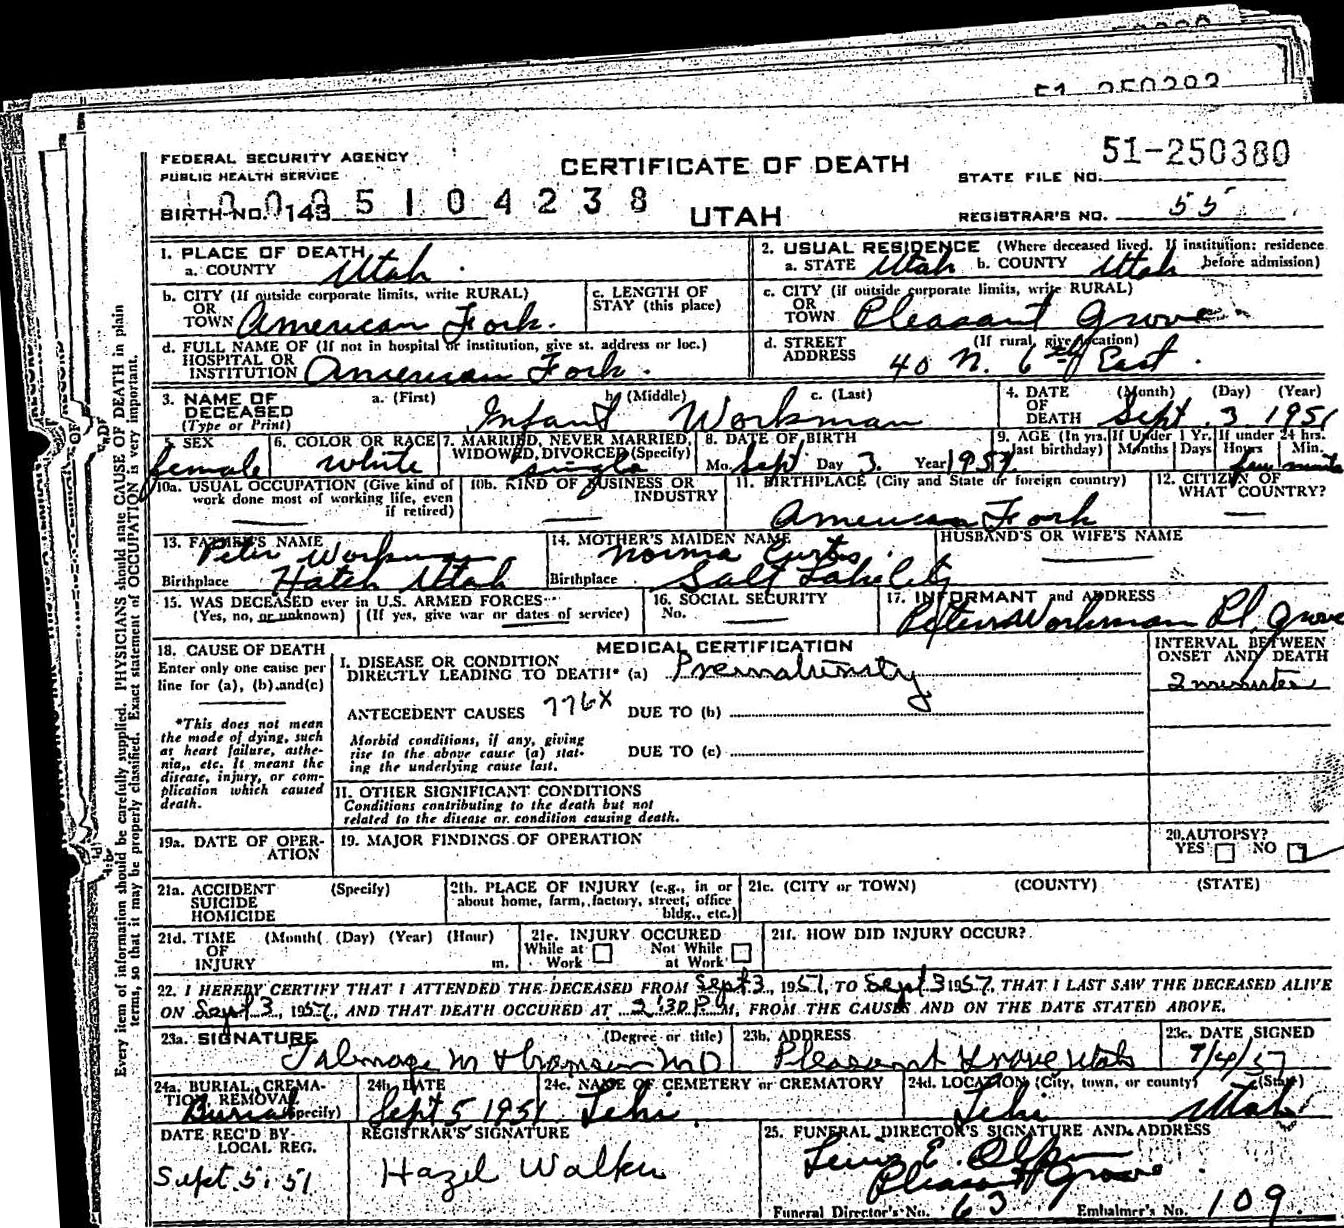 51-250383
FEDERAL SECURITY AGENCY
PUBLIC HEALTH SERVICE
CERTIFICATE OF DEATH
51-250380
STATE FILE NO.
BIRTH NO. 143 5 1 0 4 2 3 8
UTAH
REGISTRAR'S NO. 55
1. PLACE OF DEATH
a. COUNTY Utah
2. USUAL RESIDENCE (Where deceased lived. If institution: residence before admission)
a. STATE Utah b. COUNTY Utah
b. CITY (If outside corporate limits, write RURAL)
OR
TOWN American Fork.
c. LENGTH OF
STAY (this place)
c. CITY (if outside corporate limits, write RURAL)
OR
TOWN Pleasant Grove
d. FULL NAME OF (If not in hospital or institution, give st. address or loc.)
HOSPITAL OR
INSTITUTION American Fork.
d. STREET (If rural, give location)
ADDRESS 40 N. 6th East.
3. NAME OF
DECEASED
(Type or Print)
a. (First) b. (Middle) c. (Last)
Infant Workman
4. DATE
OF
DEATH
(Month) (Day) (Year)
Sept. 3 1951
5. SEX
female
6. COLOR OR RACE
white
7. MARRIED, NEVER MARRIED,
WIDOWED, DIVORCED (Specify)
single
8. DATE OF BIRTH
Mo. Sept Day 3. Year 1951
9. AGE (In yrs. last birthday)
If Under 1 Yr. Months Days
If under 24 hrs. Hours Min.
few minutes
10a. USUAL OCCUPATION (Give kind of
work done most of working life, even
if retired)
10b. KIND OF BUSINESS OR
INDUSTRY
11. BIRTHPLACE (City and State or foreign country)
American Fork
12. CITIZEN OF
WHAT COUNTRY?
13. FATHER'S NAME
Peter Workman
Birthplace Hatch Utah
14. MOTHER'S MAIDEN NAME
Norma Curtis
Birthplace Salt Lake City
HUSBAND'S OR WIFE'S NAME
15. WAS DECEASED ever in U.S. ARMED FORCES
(Yes, no, or unknown) (If yes, give war or dates of service)
16. SOCIAL SECURITY
No.
17. INFORMANT and ADDRESS
Workman Pl. Grove
18. CAUSE OF DEATH
Enter only one cause per
line for (a), (b) and (c)
*This does not mean
the mode of dying, such
as heart failure, asthe-
nia,, etc. It means the
disease, injury, or com-
plication which caused
death.
MEDICAL CERTIFICATION
I. DISEASE OR CONDITION
DIRECTLY LEADING TO DEATH* (a) Prematurity
INTERVAL BETWEEN
ONSET AND DEATH
2 minutes
ANTECEDENT CAUSES 776X DUE TO (b)
Morbid conditions, if any, giving
rise to the above cause (a) stat-
ing the underlying cause last.
DUE TO (c)
II. OTHER SIGNIFICANT CONDITIONS
Conditions contributing to the death but not
related to the disease or condition causing death.
19a. DATE OF OPER-
ATION
19. MAJOR FINDINGS OF OPERATION
20. AUTOPSY?
YES NO
21a. ACCIDENT
SUICIDE
HOMICIDE
(Specify)
21b. PLACE OF INJURY (e.g., in or
about home, farm, factory, street, office
bldg., etc.)
21c. (CITY or TOWN) (COUNTY) (STATE)
21d. TIME
OF
INJURY
(Month( (Day) (Year) (Hour)
m.
21e. INJURY OCCURED
While at
Work
Not While
at Work
21f. HOW DID INJURY OCCUR?
22. I HEREBY CERTIFY THAT I ATTENDED THE DECEASED FROM Sept 3, 1951, TO Sept 3 1951, THAT I LAST SAW THE DECEASED ALIVE
ON Sept 3, 1951, AND THAT DEATH OCCURED AT 2:30 P.M, FROM THE CAUSES AND ON THE DATE STATED ABOVE.
23a. SIGNATURE (Degree or title)
Talmage M MD
23b. ADDRESS
Pleasant Grove Utah
23c. DATE SIGNED
24a. BURIAL, CREMA-
TION, REMOVAL
(Specify)
Burial
24b. DATE
Sept 5 1951
24c. NAME OF CEMETERY or CREMATORY
Lehi
24d. LOCATION (City, town, or county) (State)
Lehi Utah
DATE REC'D BY
LOCAL REG.
Sept. 5. 51
REGISTRAR'S SIGNATURE
Hazel Walker
25. FUNERAL DIRECTOR'S SIGNATURE AND ADDRESS
E. Olpin
Pleasant Grove
Funeral Director's No. 63 Embalmer's No. 109
Every item of information should be carefully supplied. PHYSICIANS should state CAUSE OF DEATH in plain
terms, so that it may be properly classified. Exact statement of OCCUPATION is very important.